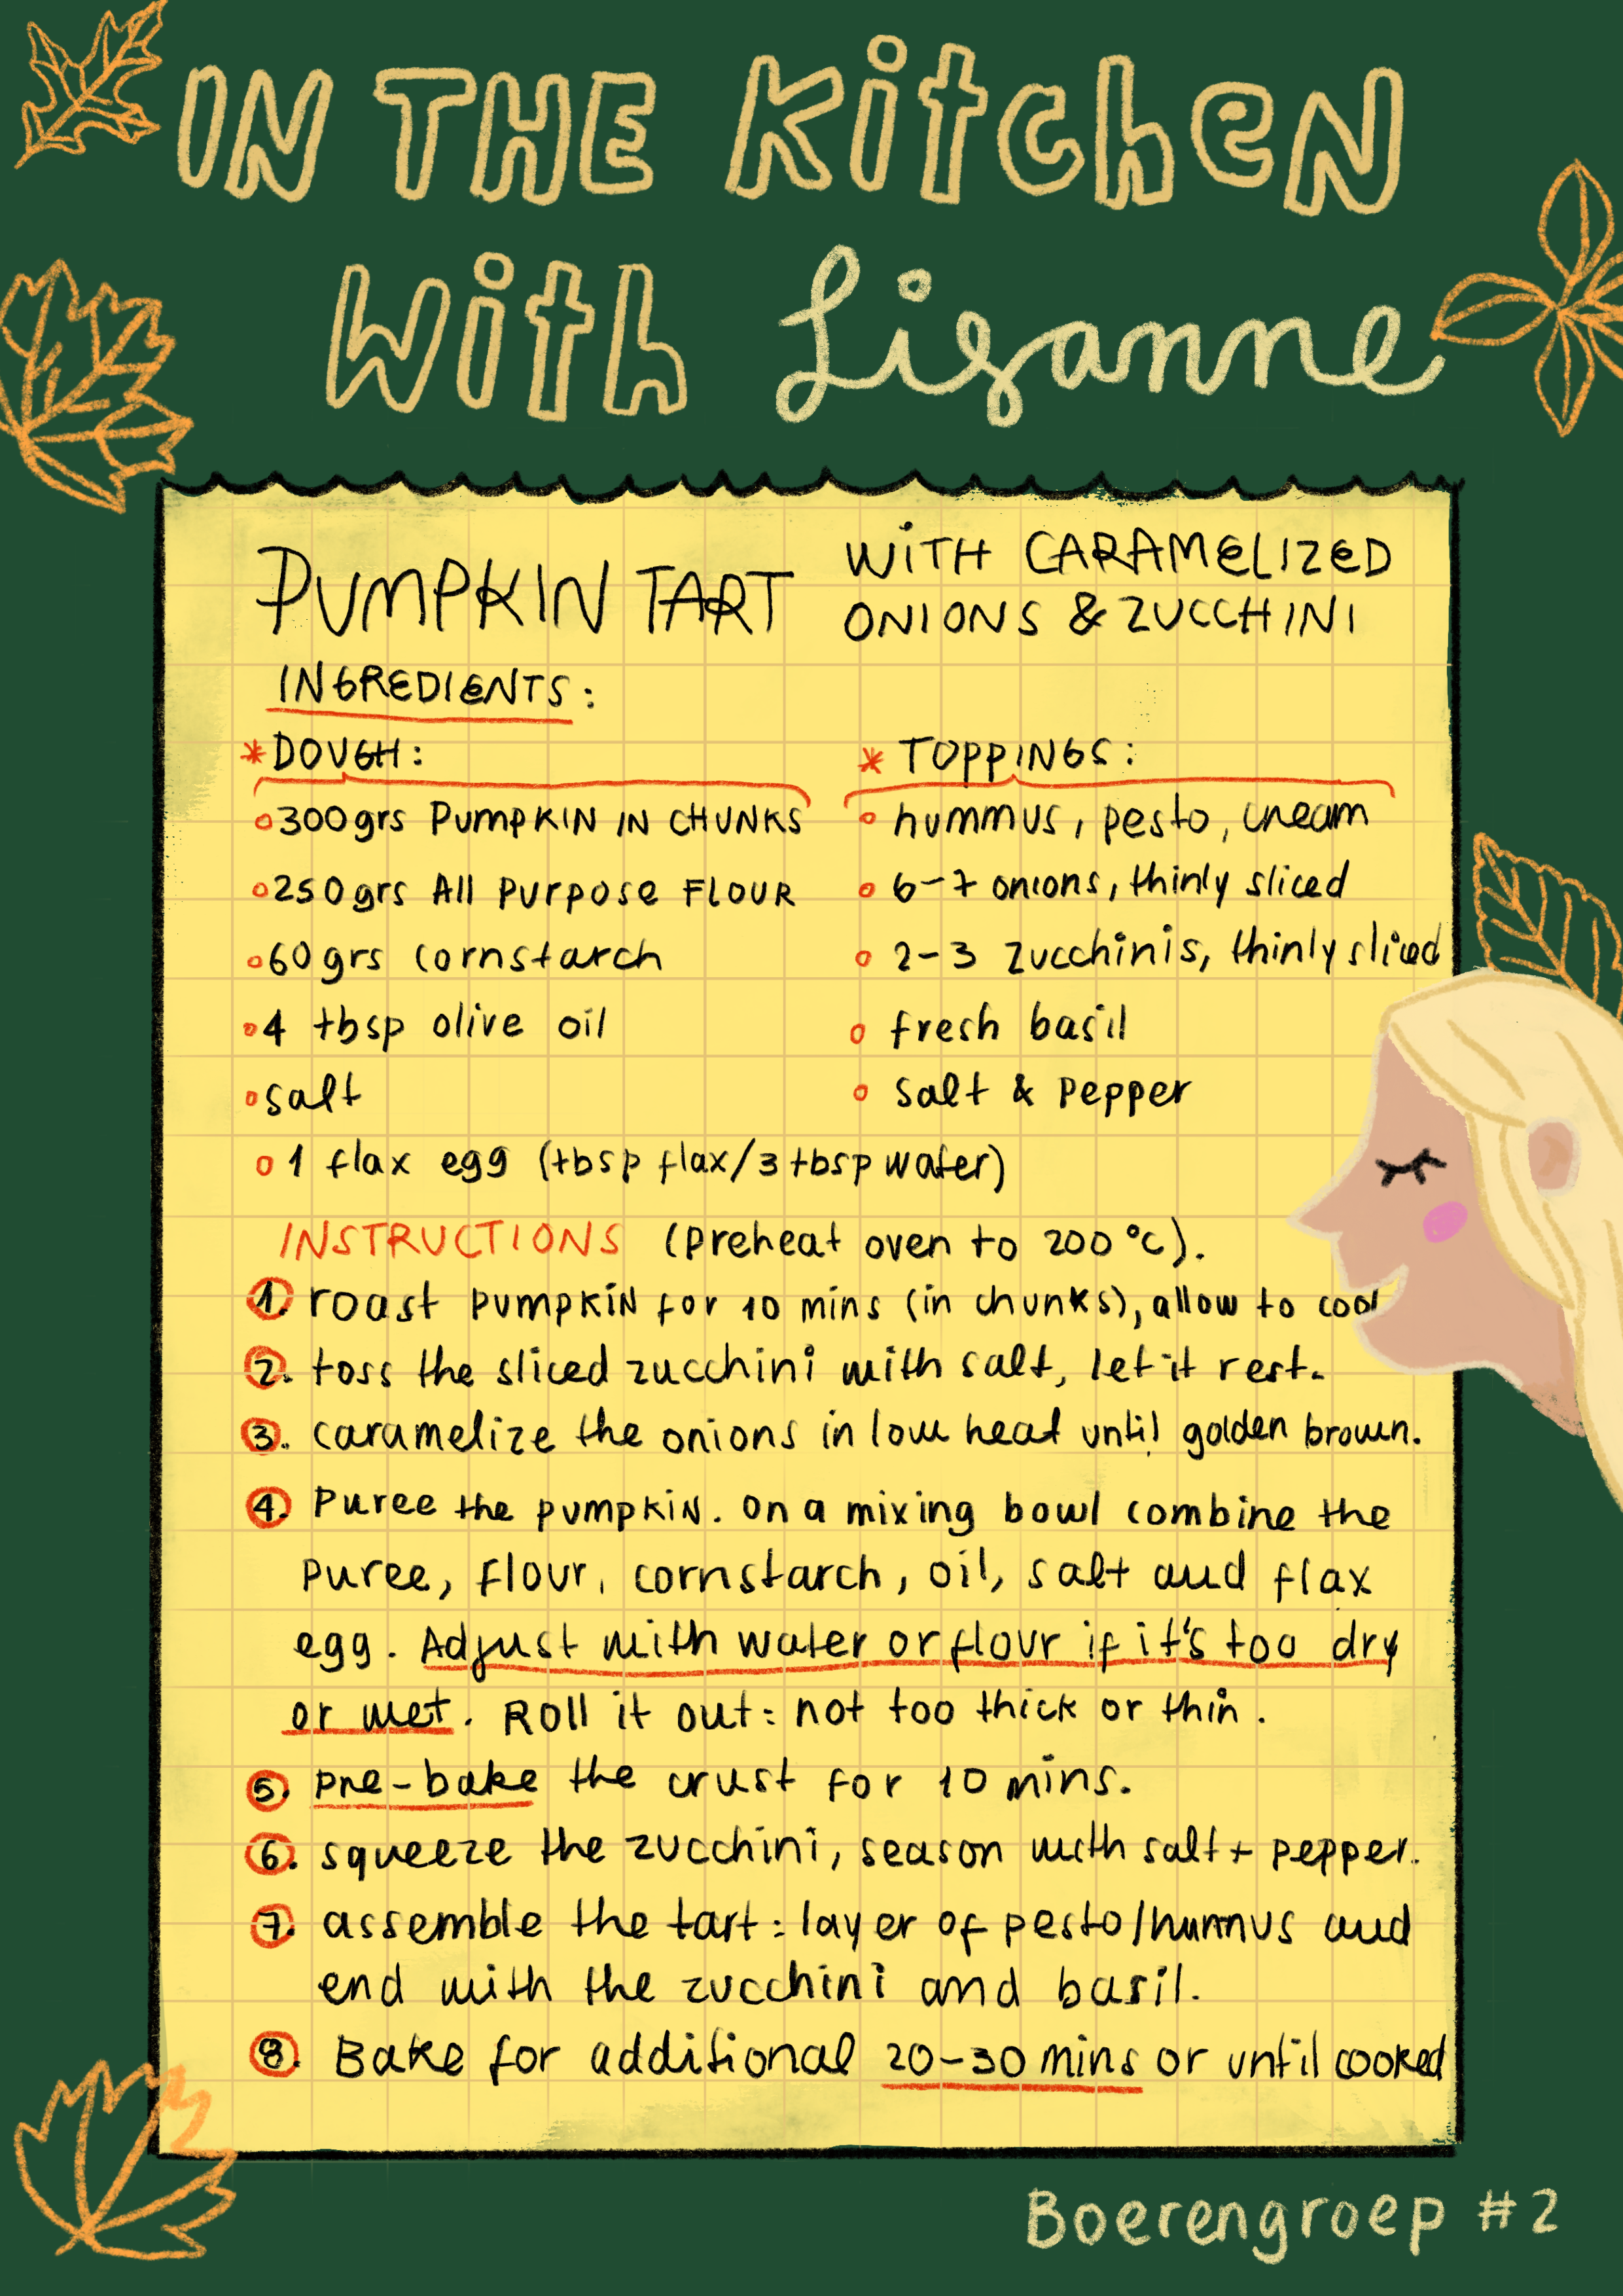 IN THE KitcheN
With Lisanne
PUMPKIN TART WITH CARAMeLIZeD
ONIONS & ZUCCHINI
INGREDIeNTS:
*DOUGH:
◦300grs PUmpKIN IN CHUNKS
◦250grs All PurPose FLOUR
◦60grs cornstarch
◦4 tbsp olive oil
◦salt
◦1 flax egg (tbsp flax/3 tbsp water)
* TOPPINGS:
◦ hummus, pesto, cream
◦ 6-7 onions, thinly sliced
◦ 2-3 zucchinis, thinly sliced
◦ fresh basil
◦ salt & Pepper
INSTRUCTIONS (Preheat oven to 200°c).
1. roast pumpkiN for 10 mins (in chunks), allow to cool
2. toss the sliced zucchini with salt, let it rest.
3. caramelize the onions in low heat until golden brown.
4. Puree the pumpkiN. on a mixing bowl combine the
Puree, flour, cornstarch, oil, salt and flax
egg. Adjust with water or flour if it's too dry
or wet. Roll it out: not too thick or thin.
5. pre-bake the crust for 10 mins.
6. squeeze the zucchini, season with salt + pepper.
7. assemble the tart: layer of pesto/hummus and
end with the zucchini and basil.
8. Bake for additional 20-30 mins or until cooked
Boerengroep #2